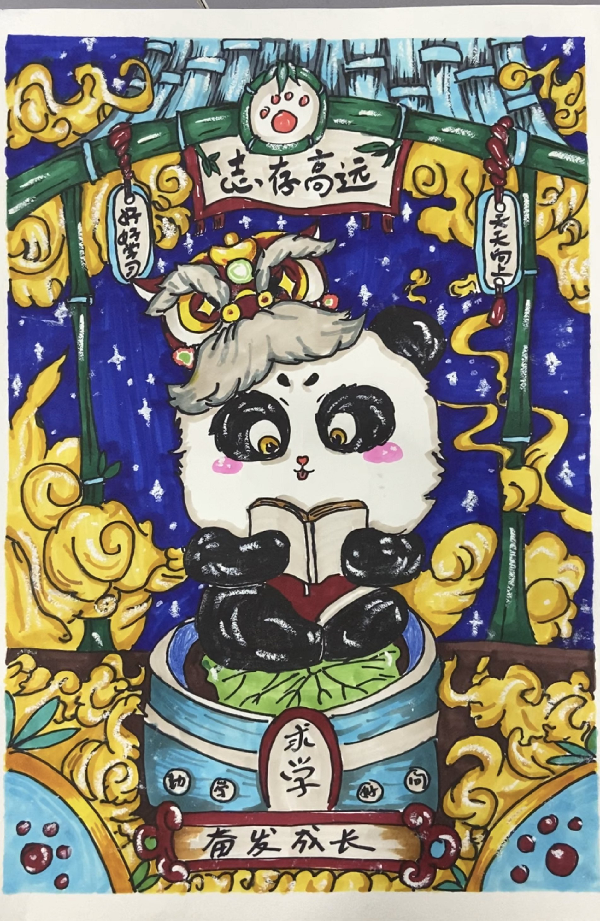 志存高远
好好学习
天天向上
求学
勤学好问
奋发成长